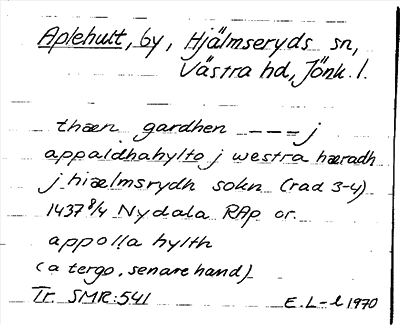 Aplehult, by, Hjälmseryds sn,
Västra hd, Jönk. l.
thæn gardhen --- j
appaldhahylto j westra hæradh
j hiælmsrydh sokn (rad 3-4)
1437 8/4 Nydala RAp or.
appolla hylth
(a tergo, senare hand)
Tr. SMR:541
E.L-l 1970